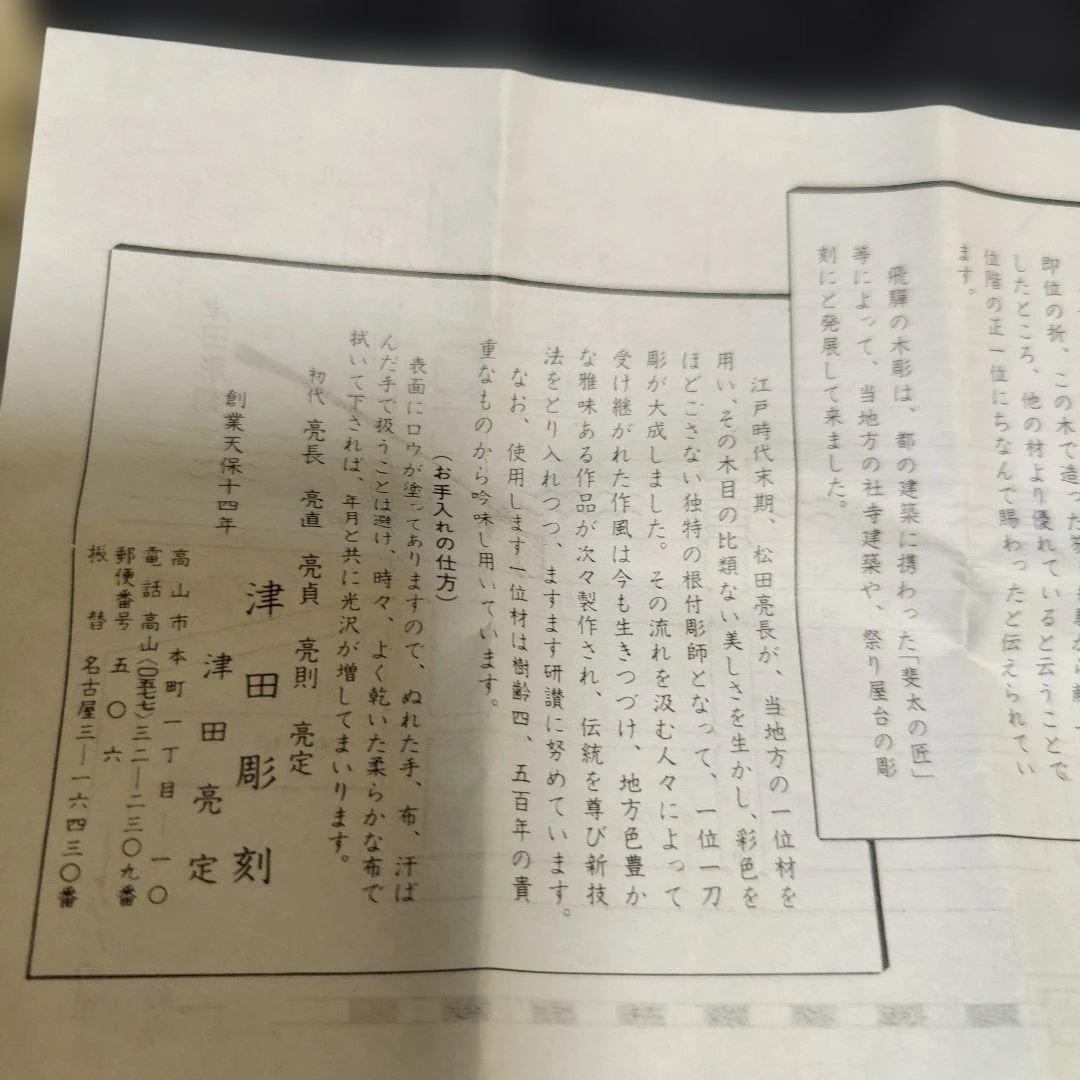 即位の折、この木で造った
したところ、他の材より優れていると云うことで
位階の正一位にちなんで賜わったと伝えられてい
ます。
飛騨の木彫は、都の建築に携わった「斐太の匠」
等によって、当地方の社寺建築や、祭り屋台の彫
刻にと発展して来ました。
江戸時代末期、松田亮長が、当地方の一位材を
用い、その木目の比類ない美しさを生かし、彩色を
ほどこさない独特の根付彫師となって、一位一刀
彫が大成しました。その流れを汲む人々によって
受け継がれた作風は今も生きつづけ、地方色豊か
な雅味ある作品が次々製作され、伝統を尊び新技
法をとり入れつつ、ますます研讃に努めています。
なお、使用します一位材は樹齢四、五百年の貴
重なものから吟味し用いています。
(お手入れの仕方)
表面にロウが塗ってありますので、ぬれた手、布、汗ば
んだ手で扱うことは避け、時々、よく乾いた柔らかな布で
拭いて下されば、年月と共に光沢が増してまいります。
初代 亮長 亮直 亮貞 亮則 亮定
創業天保十四年
津田彫刻
津田亮定
高山市本町一丁目一〇
電話高山〈〇五七七〉三二―二三〇九番
郵便番号 五〇六
振替 名古屋三―一六四三〇番